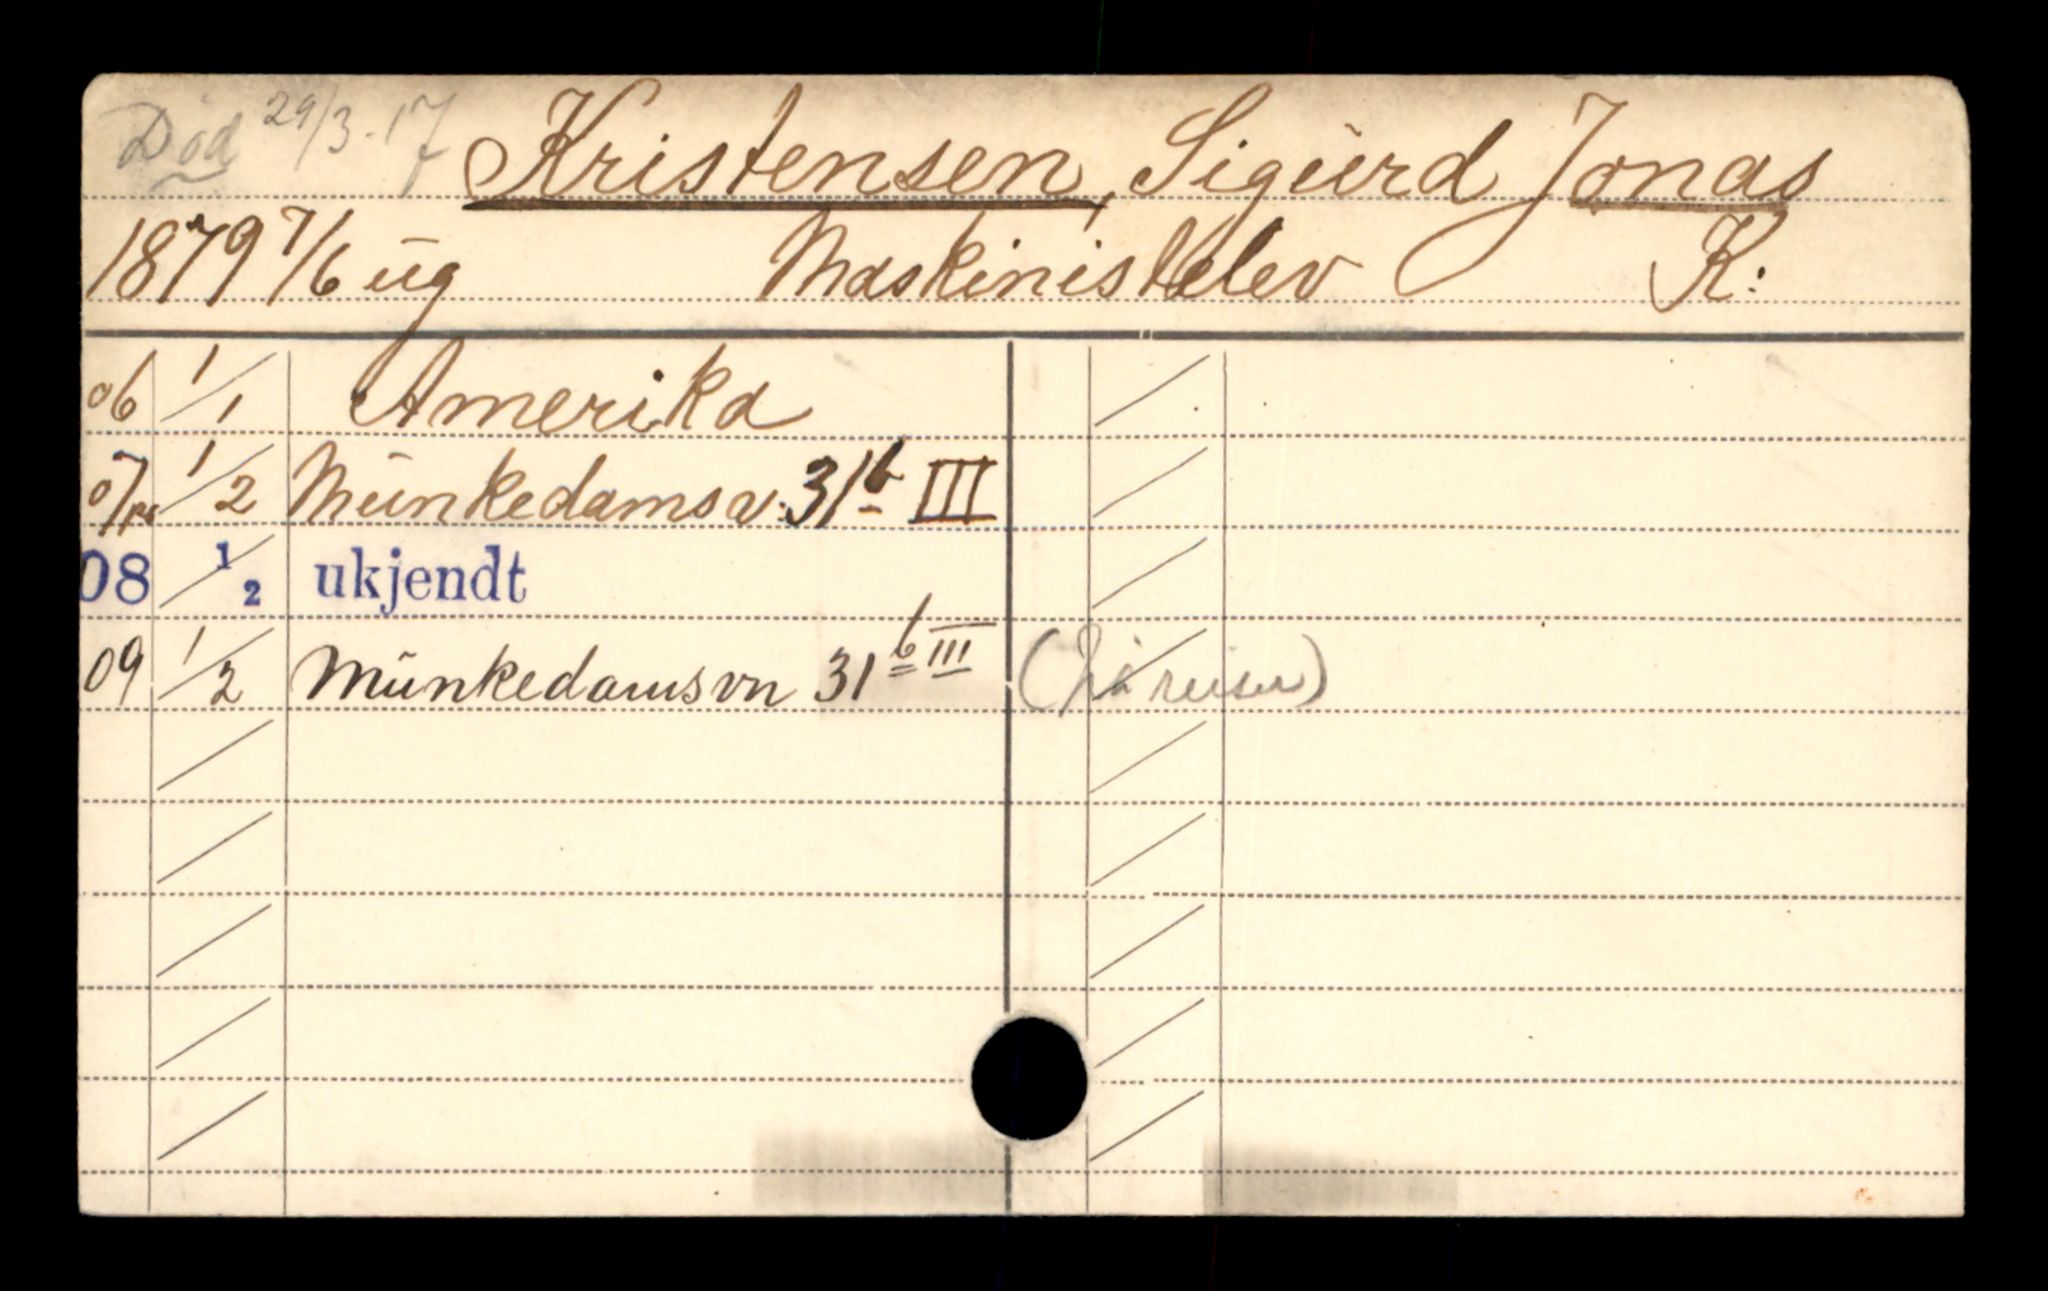 Død 29/3-17 Kristensen, Sigurd Jonas
1879 7/6 ug Maskinistelev K:
06 1/1 Amerika
07 1/2 Munkedamsv. 31b III
08 1/2 ukjendt
09 1/2 Munkedamsvn 31b III (på reiser)